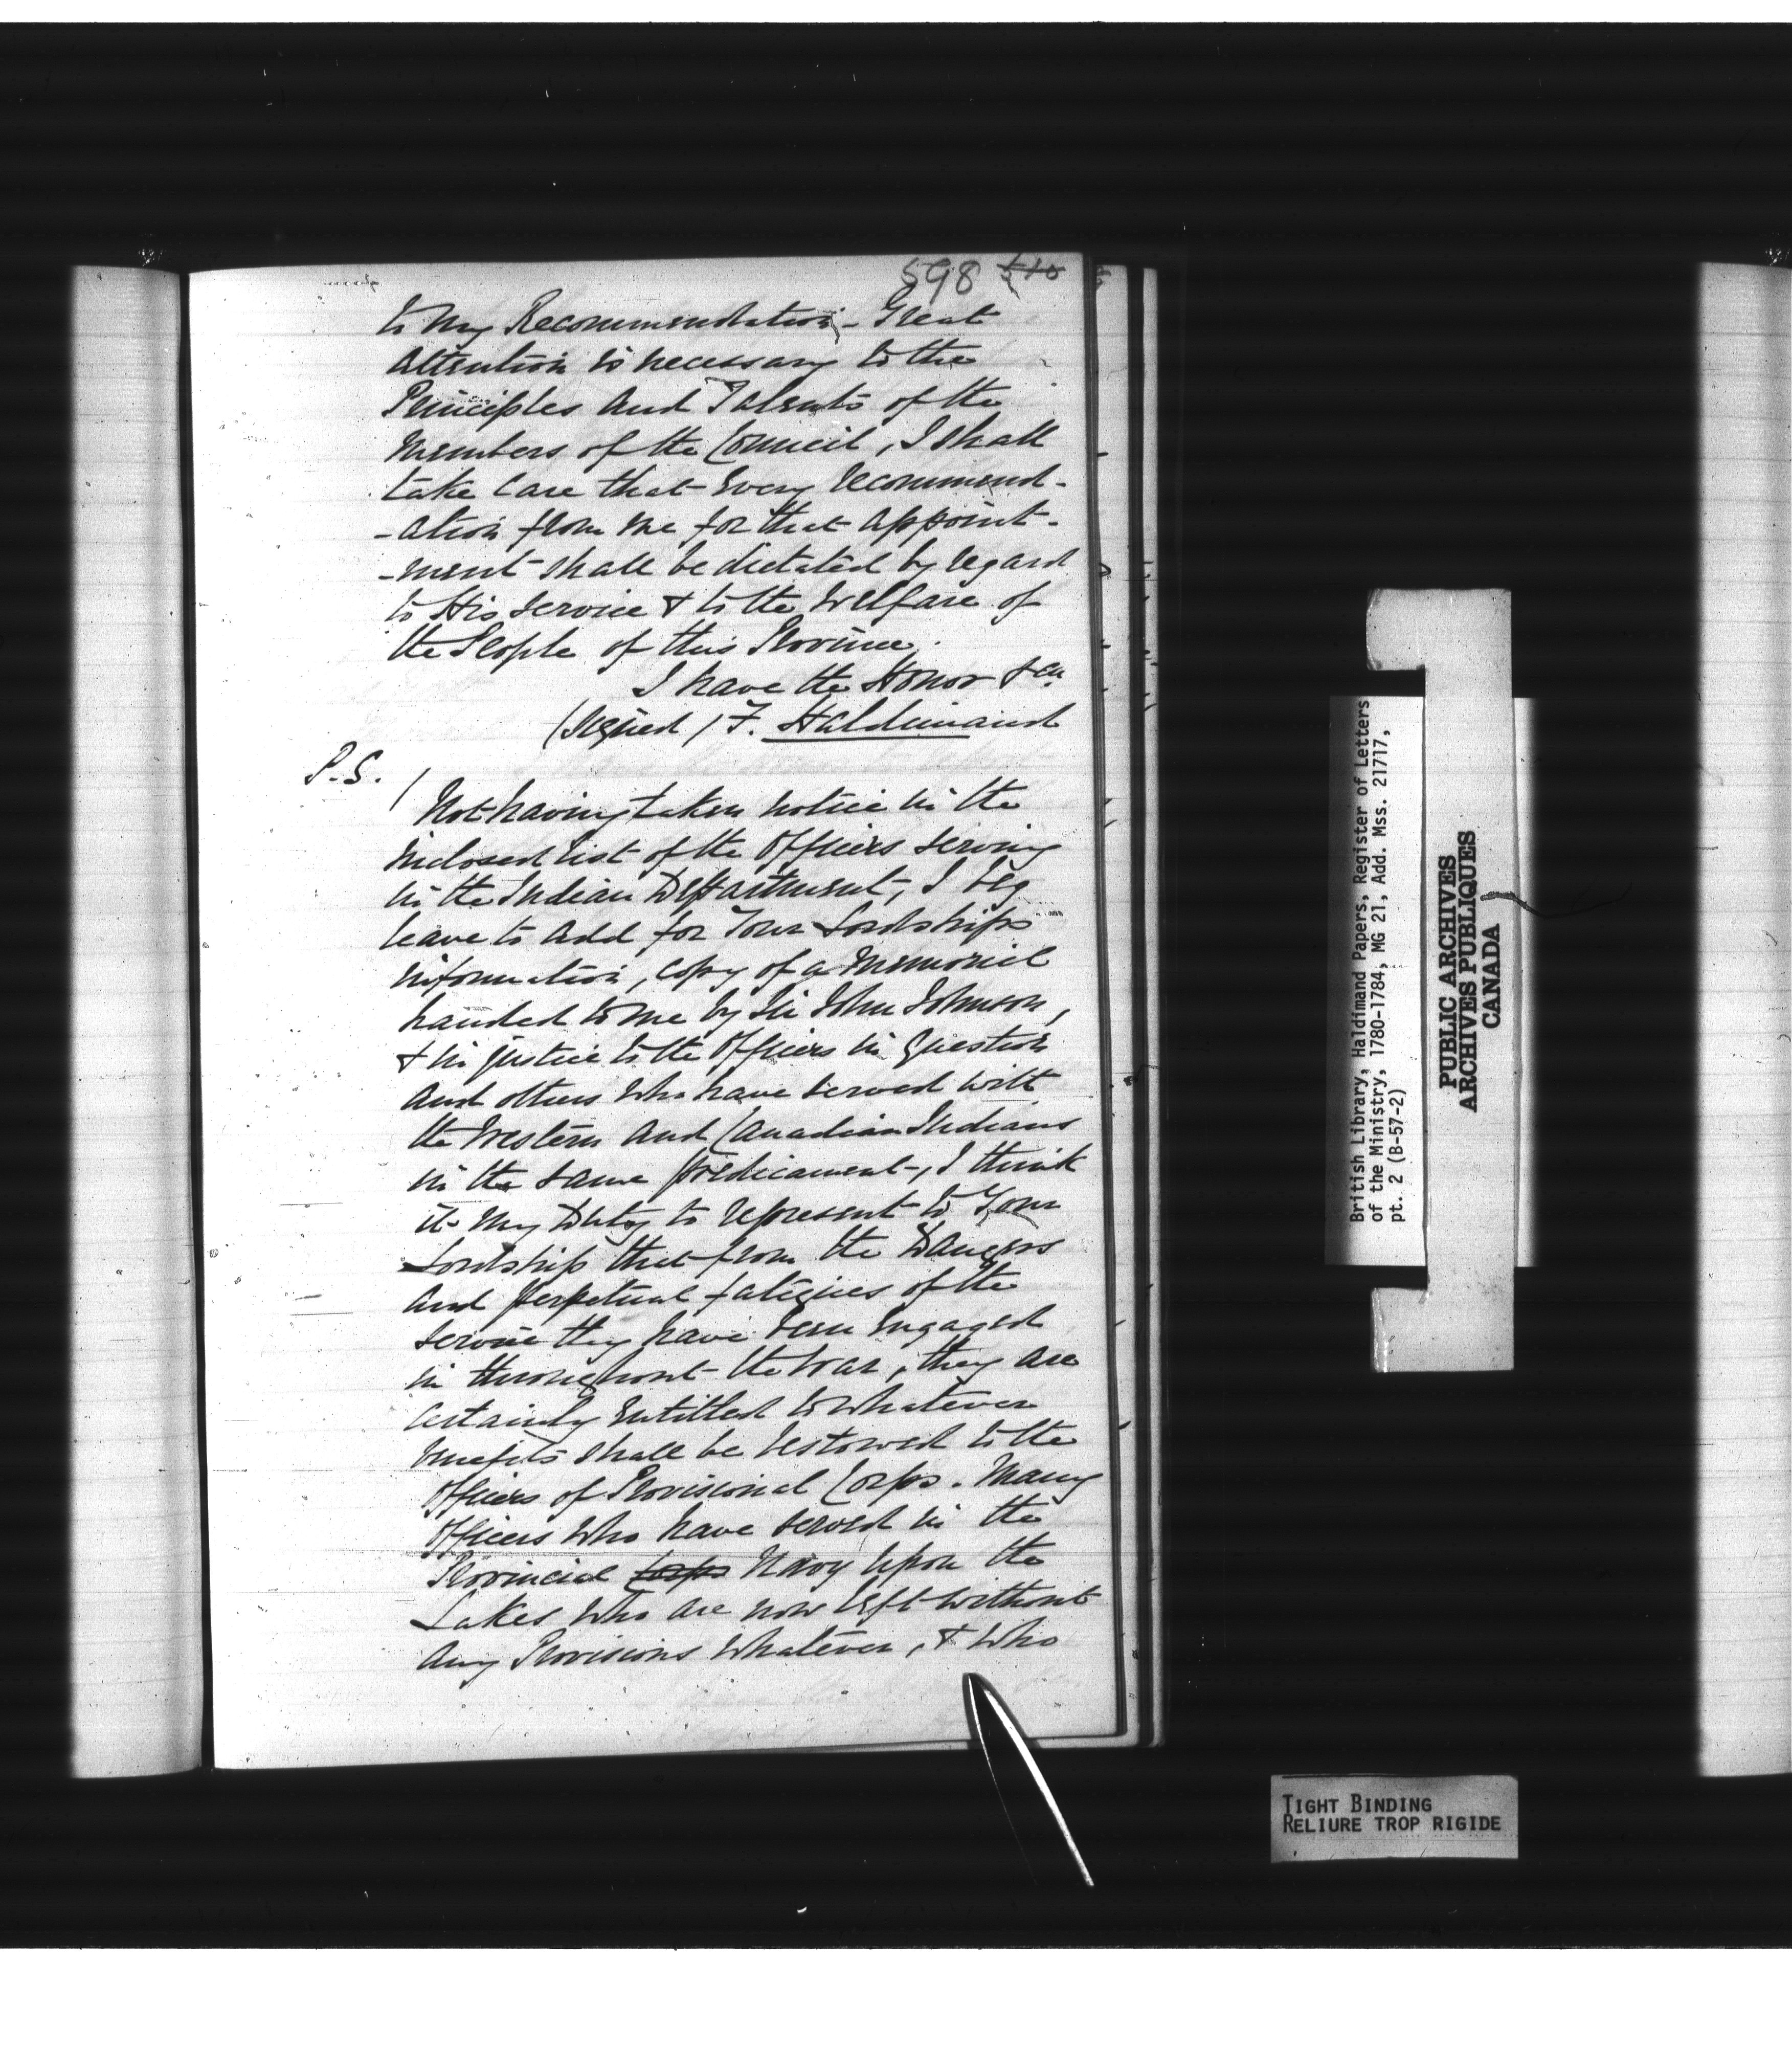 598
to my Recommendation, - Great
attention is necessary to the
Principles and Talents of the
members of the Council, I shall
take Care that Every recommend-
-ation from me for that appoint-
-ment shall be dictated by regard
to His Service & to the Welfare of
the People of this Province.
I have the Honor &ca.
(signed) F. Haldimand
P.S. /
Not having taken notice in the
inclosed list of the Officers serving
in the Indian Department, I beg
leave to add for Your Lordships
information, Copy of a Memorial
handed to me by Sir John Johnson,
& in justice to the Officers in Question
and others who have served with
the Western and Canadian Indians
in the same predicament, I think
it my Duty to represent to Your
Lordship that from the Dangers
and perpetual fatigues of the
Service they have been Engaged
in throughout the War, they are
Certainly Entitled to whatever
benefits shall be bestowed to the
Officers of Provisional Corps. Many
Officers who have served in the
Provincial Corps Navy upon the
Lakes who are now left without
any Provisions whatever, & who
British Library, Haldimand Papers, Register of Letters
of the Ministry, 1780-1784, MG 21, Add. Mss. 21717,
pt. 2 (B-57-2)
PUBLIC ARCHIVES
ARCHIVES PUBLIQUES
CANADA
TIGHT BINDING
RELIURE TROP RIGIDE